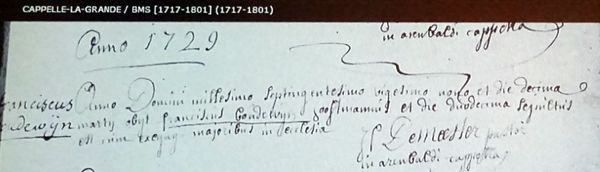 CAPPELLE-LA-GRANDE / BMS [1717-1801] (1717-1801)
in arenbaldi cappella
Anno 1729
Franciscus
Goudewyn
Anno Domini millesimo septingentesimo vigesimo nono et die decima
martij obyt franciscus Goudewyn et die duodecima sepultus
est cum majoribus in ecclesia
J Demeester pastor
in arenbaldi cappella